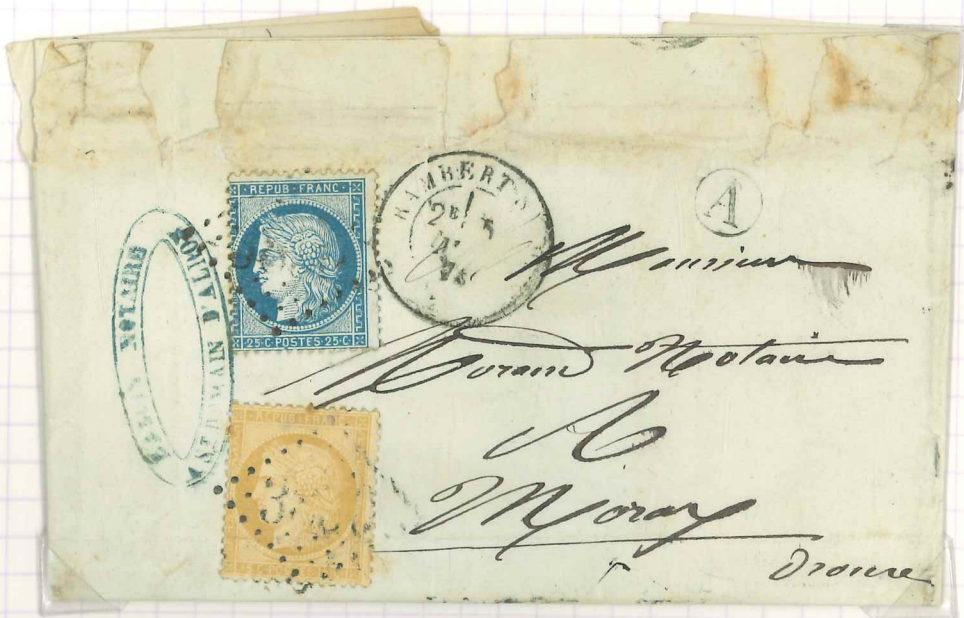 REPUB·FRANC·
25·C·POSTES·25·C·
RAMBERT
2E
A
NOTAIRE
A ST ROMAIN D'ALBON
REPUB·FRANC
Monsieur
Morand Notaire
A
Moras
Drome